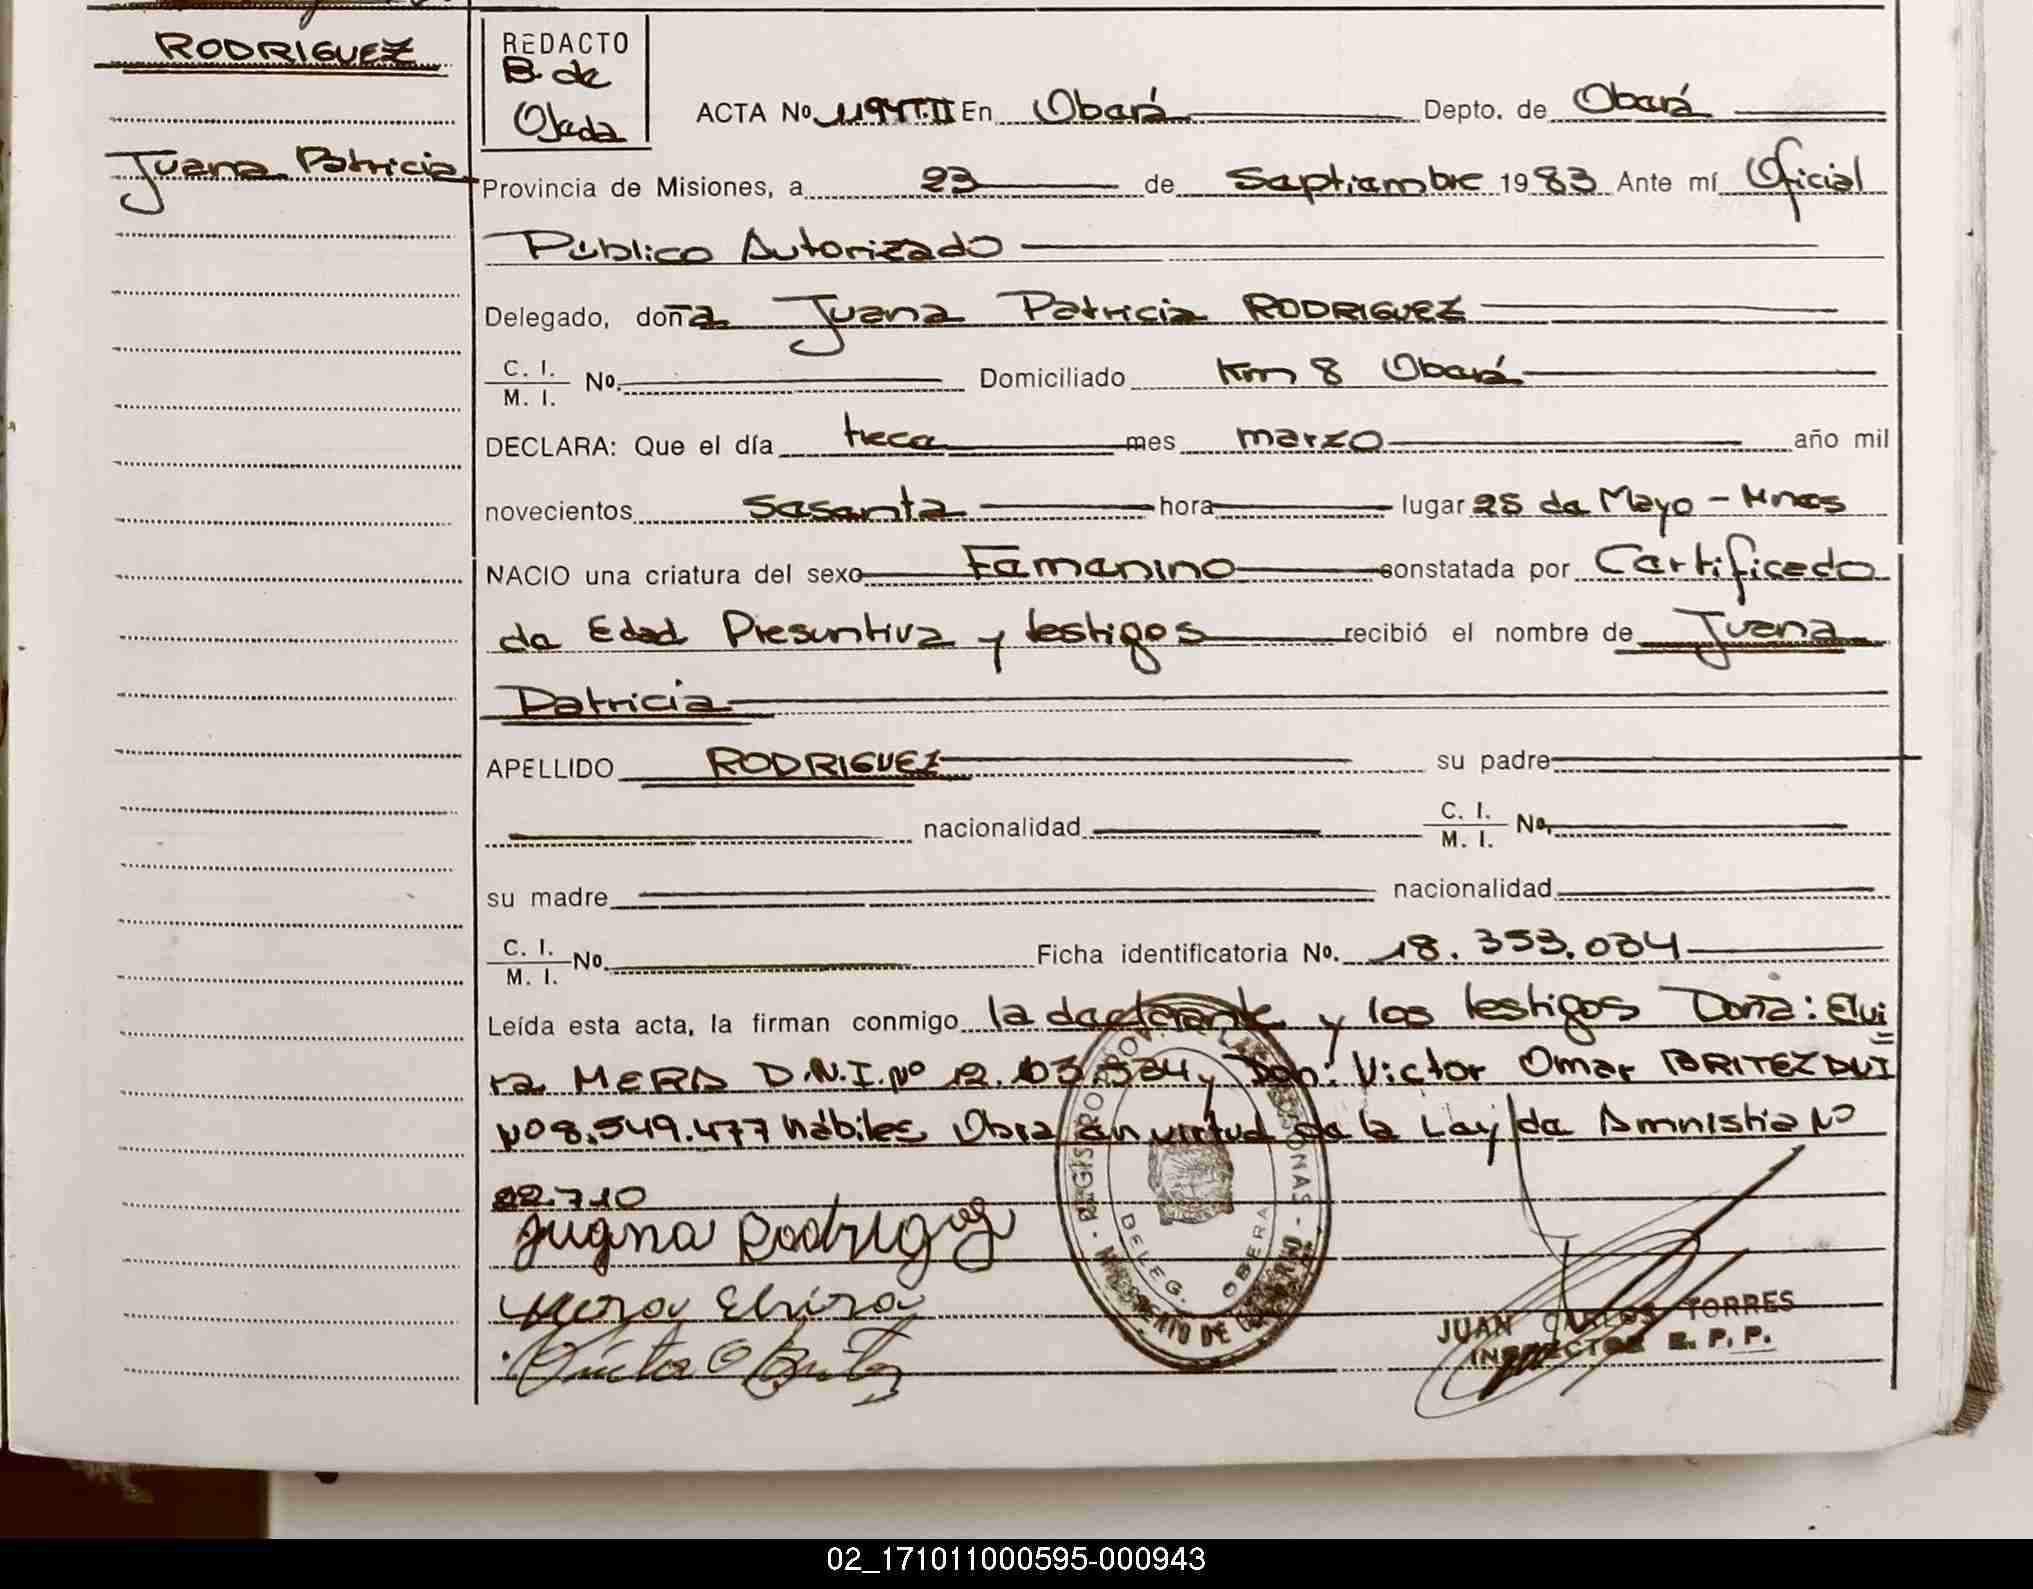 RODRIGUEZ
Juana Patricia
REDACTO
B. de
Ojeda
ACTA No. 1194T.II En Oberá Depto. de Oberá
Provincia de Misiones, a 23 de Septiembre 1983 Ante mí Oficial
Público Autorizado
Delegado, doña Juana Patricia RODRIGUEZ
C. I.
M. I. No. Domiciliado Km 8 Oberá
DECLARA: Que el día trece mes marzo año mil
novecientos sesenta hora lugar 25 de Mayo - Mnes
NACIO una criatura del sexo Femenino constatada por Certificado
de Edad Presuntiva y testigos recibió el nombre de Juana
Patricia
APELLIDO RODRIGUEZ su padre
nacionalidad C. I.
M. I. No.
su madre nacionalidad
C. I.
M. I. No. Ficha identificatoria No. 18.353.034
Leída esta acta, la firman conmigo la declarante y los testigos Doña: Elvi
ra MERA D.N.I. Nº Don: Victor Omar BRITEZ DNI
Nº 8.549.477 hábiles. Obra en virtud de la Ley de Amnistia Nº
22.710
Jugna Rodriguez
Mera Elvira
Victor O Britez
REGISTRO PROV. DE LAS PERSONAS - MINISTERIO DE GOBIERNO -
DELEG. OBERA
JUAN CARLOS TORRES
INSPECTOR R. P. P.
02_171011000595-000943